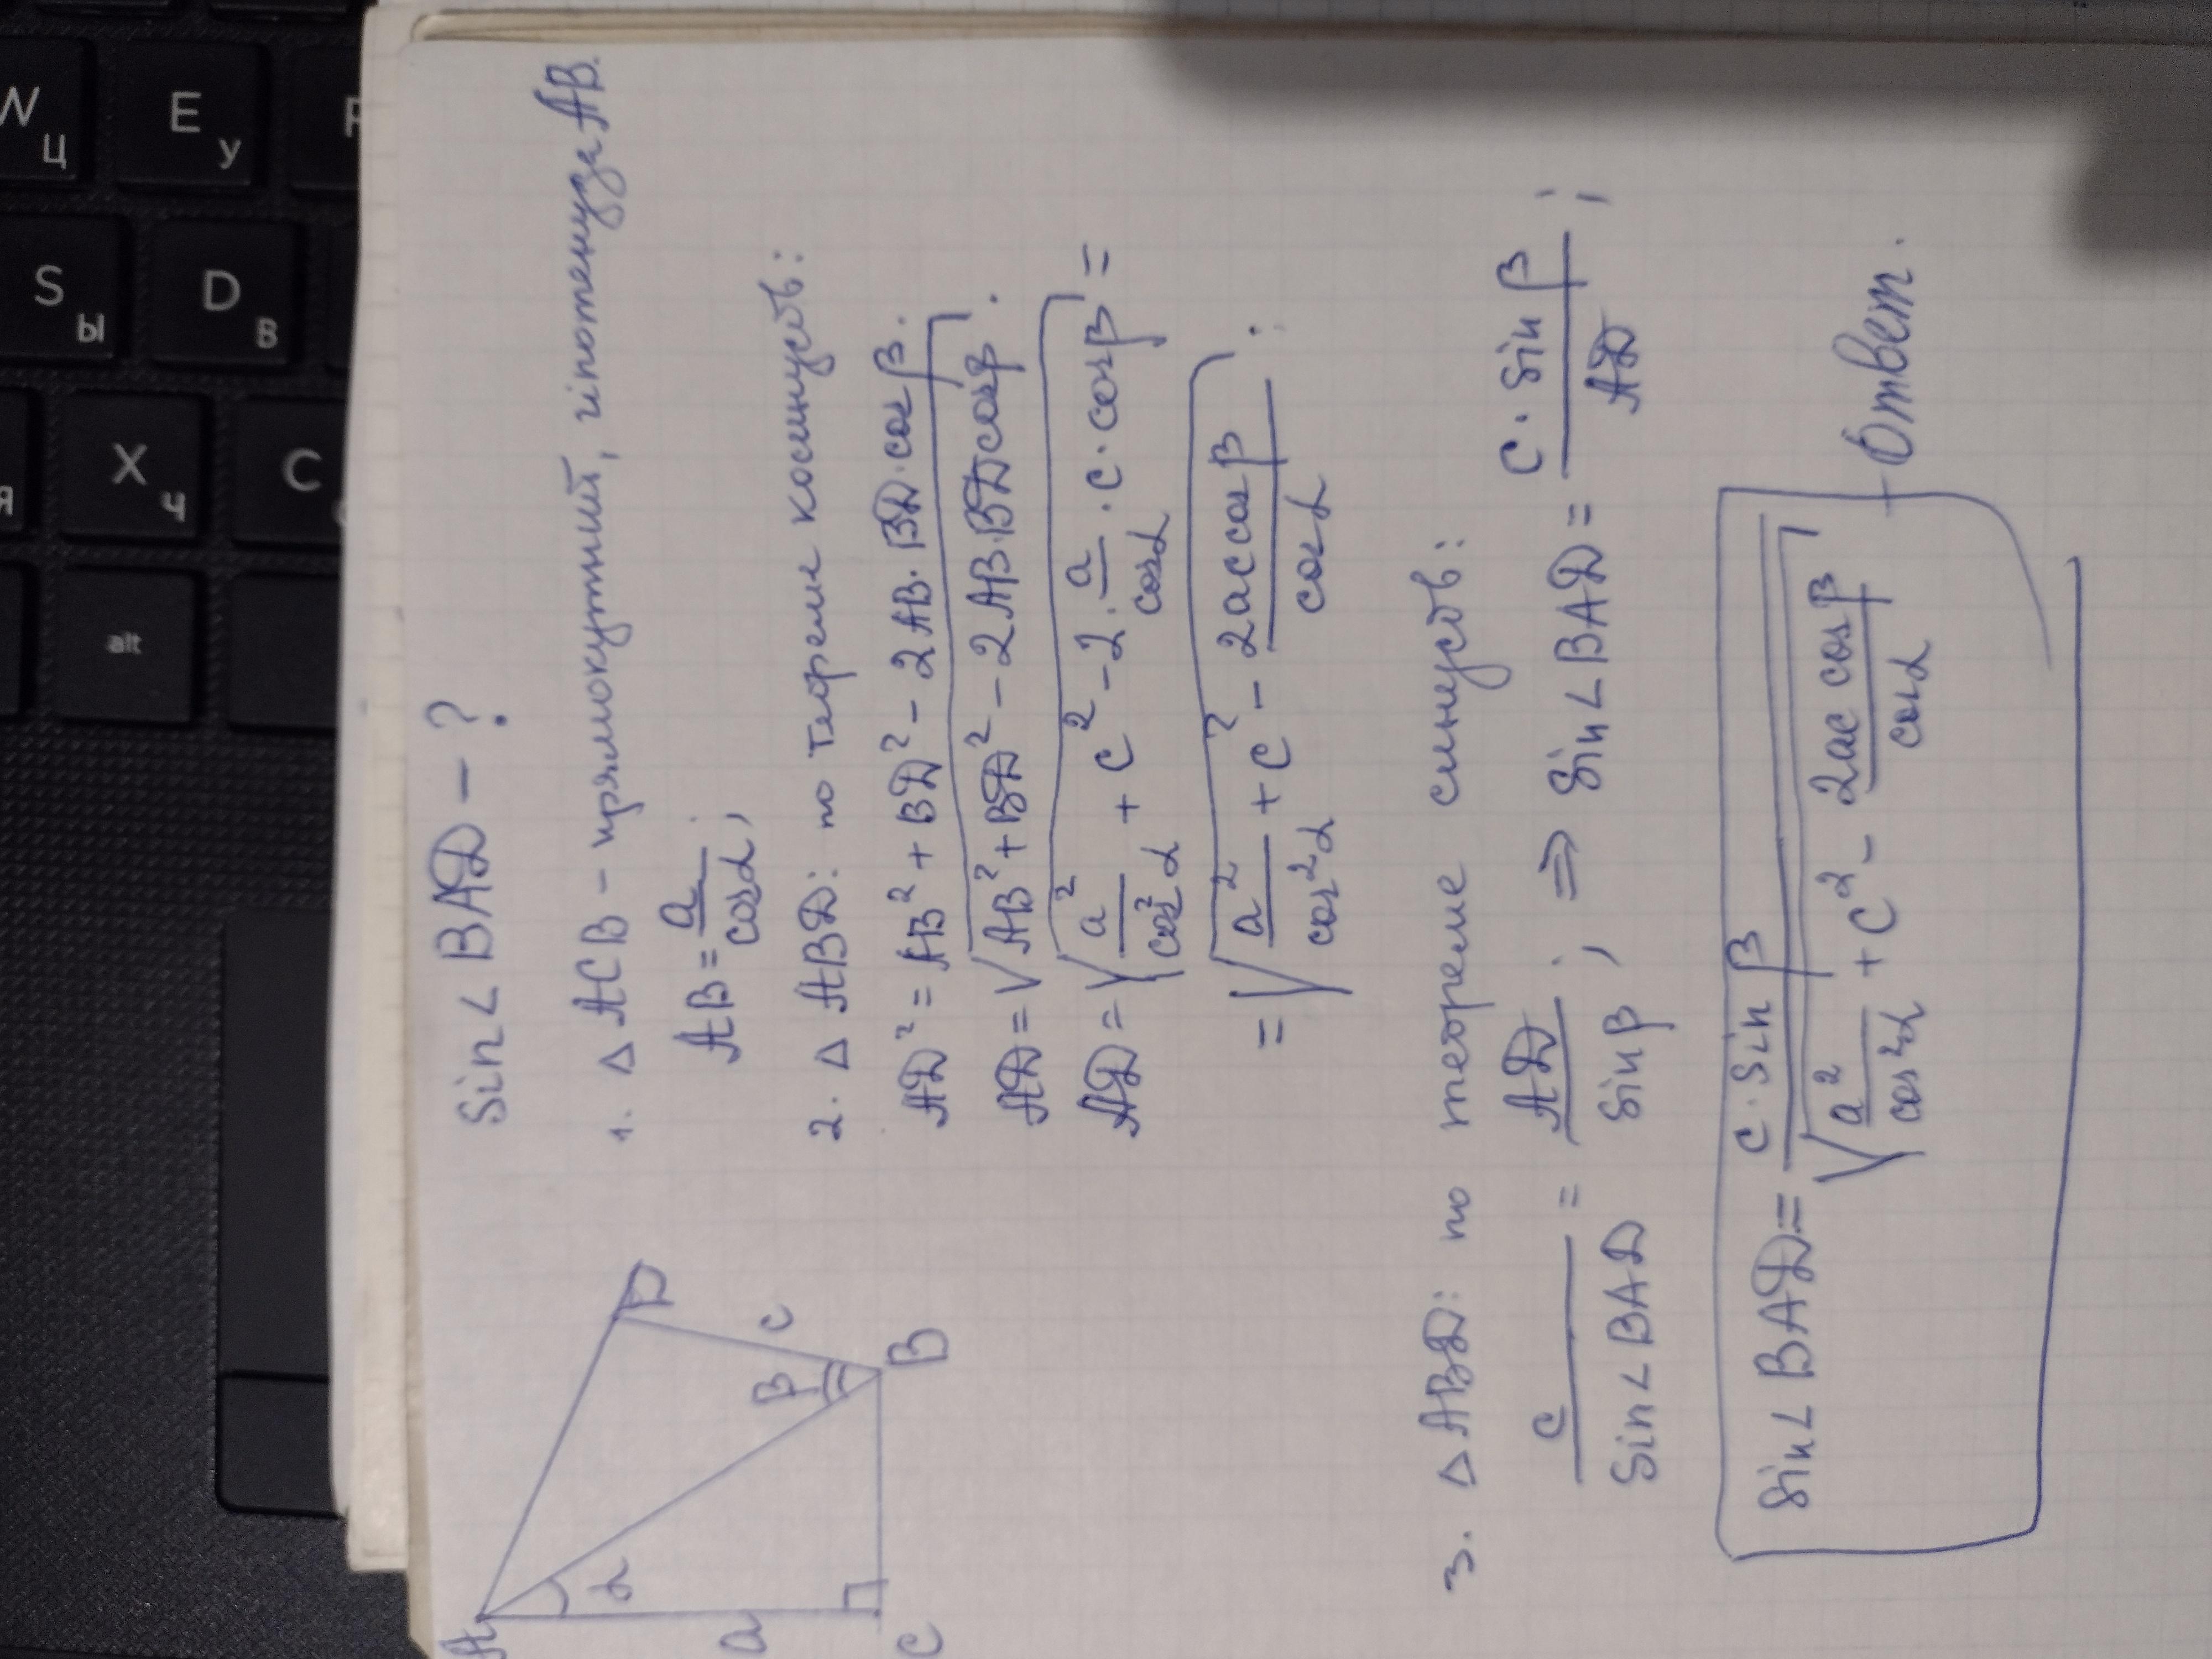 Sin∠BAD - ?
A
D
α
a
β
c
C
B
1. △ACB - прямокутний, гіпотенуза AB.
AB = a/cosα;
2. △ABD: по теореме косинусов:
AD² = AB² + BD² - 2AB·BD·cosβ.
AD = √(AB² + BD² - 2AB·BDcosβ).
AD = √(a²/cos²α + c² - 2·a/cosα·c·cosβ) =
= √(a²/cos²α + c² - 2accosβ/cosα).
3. △ABD: по теореме синусов:
c/Sin∠BAD = AD/Sinβ; ⇒ Sin∠BAD = c·Sinβ/AD;
Sin∠BAD = c·Sinβ/√(a²/cos²α + c² - 2ac cosβ/cosα) - Ответ.
W
Ц
E
У
S
Ы
D
В
Я
X
Ч
C
alt